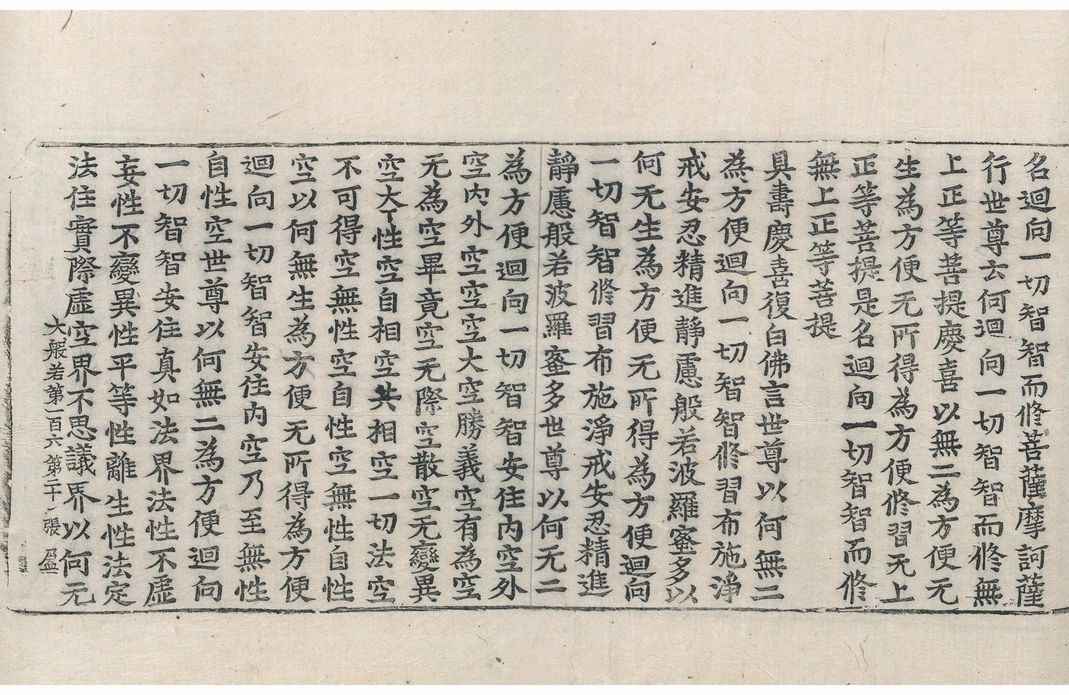 名迴向一切智智而修菩薩摩訶薩
行世尊云何迴向一切智智而修無
上正等菩提慶喜以無二為方便无
生為方便无所得為方便修習无上
正等菩提是名迴向一切智智而修
無上正等菩提
具壽慶喜復白佛言世尊以何無二
為方便迴向一切智智修習布施淨
戒安忍精進靜慮般若波羅蜜多以
何无生為方便无所得為方便迴向
一切智智修習布施淨戒安忍精進
靜慮般若波羅蜜多世尊以何无二
為方便迴向一切智智安住內空外
空內外空空空大空勝義空有為空
无為空畢竟空无際空散空无變異
空本性空自相空共相空一切法空
不可得空無性空自性空無性自性
空以何無生為方便无所得為方便
迴向一切智智安住內空乃至無性
自性空世尊以何無二為方便迴向
一切智智安住真如法界法性不虛
妄性不變異性平等性離生性法定
法住實際虛空界不思議界以何无
大般若第一百六 第二十張 盈